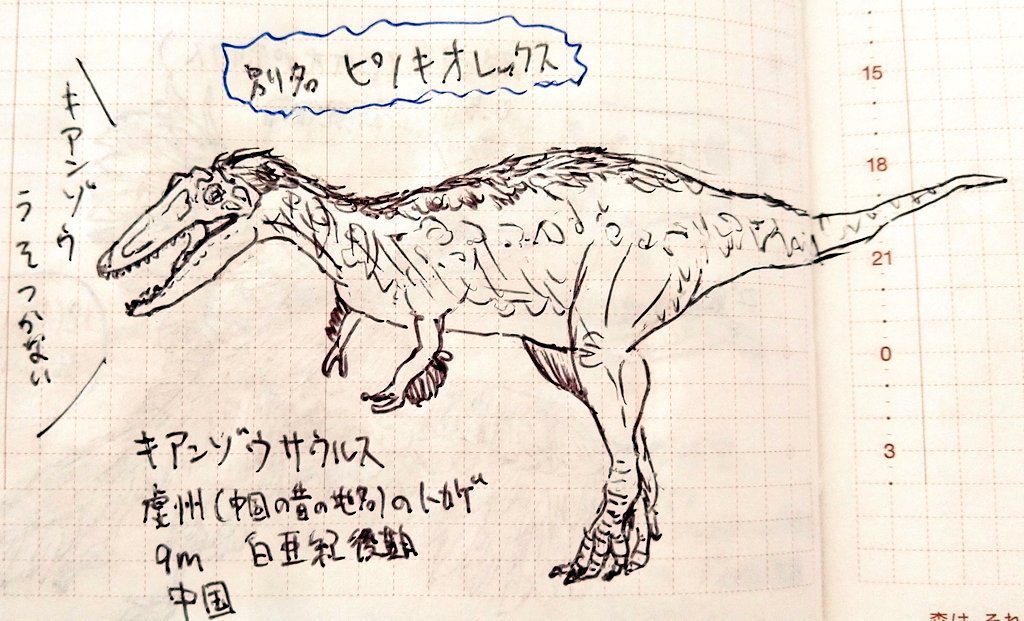 別名 ピノキオレックス
キアンゾウ
うそつかない
キアンゾウサウルス
虔州(中国の昔の地名)のトカゲ
9m 白亜紀後期
中国
15
18
21
0
3